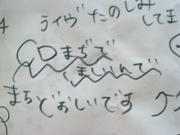 ライヴたのしみ
してま
CDまぢで
まじんで
まちどおしいです